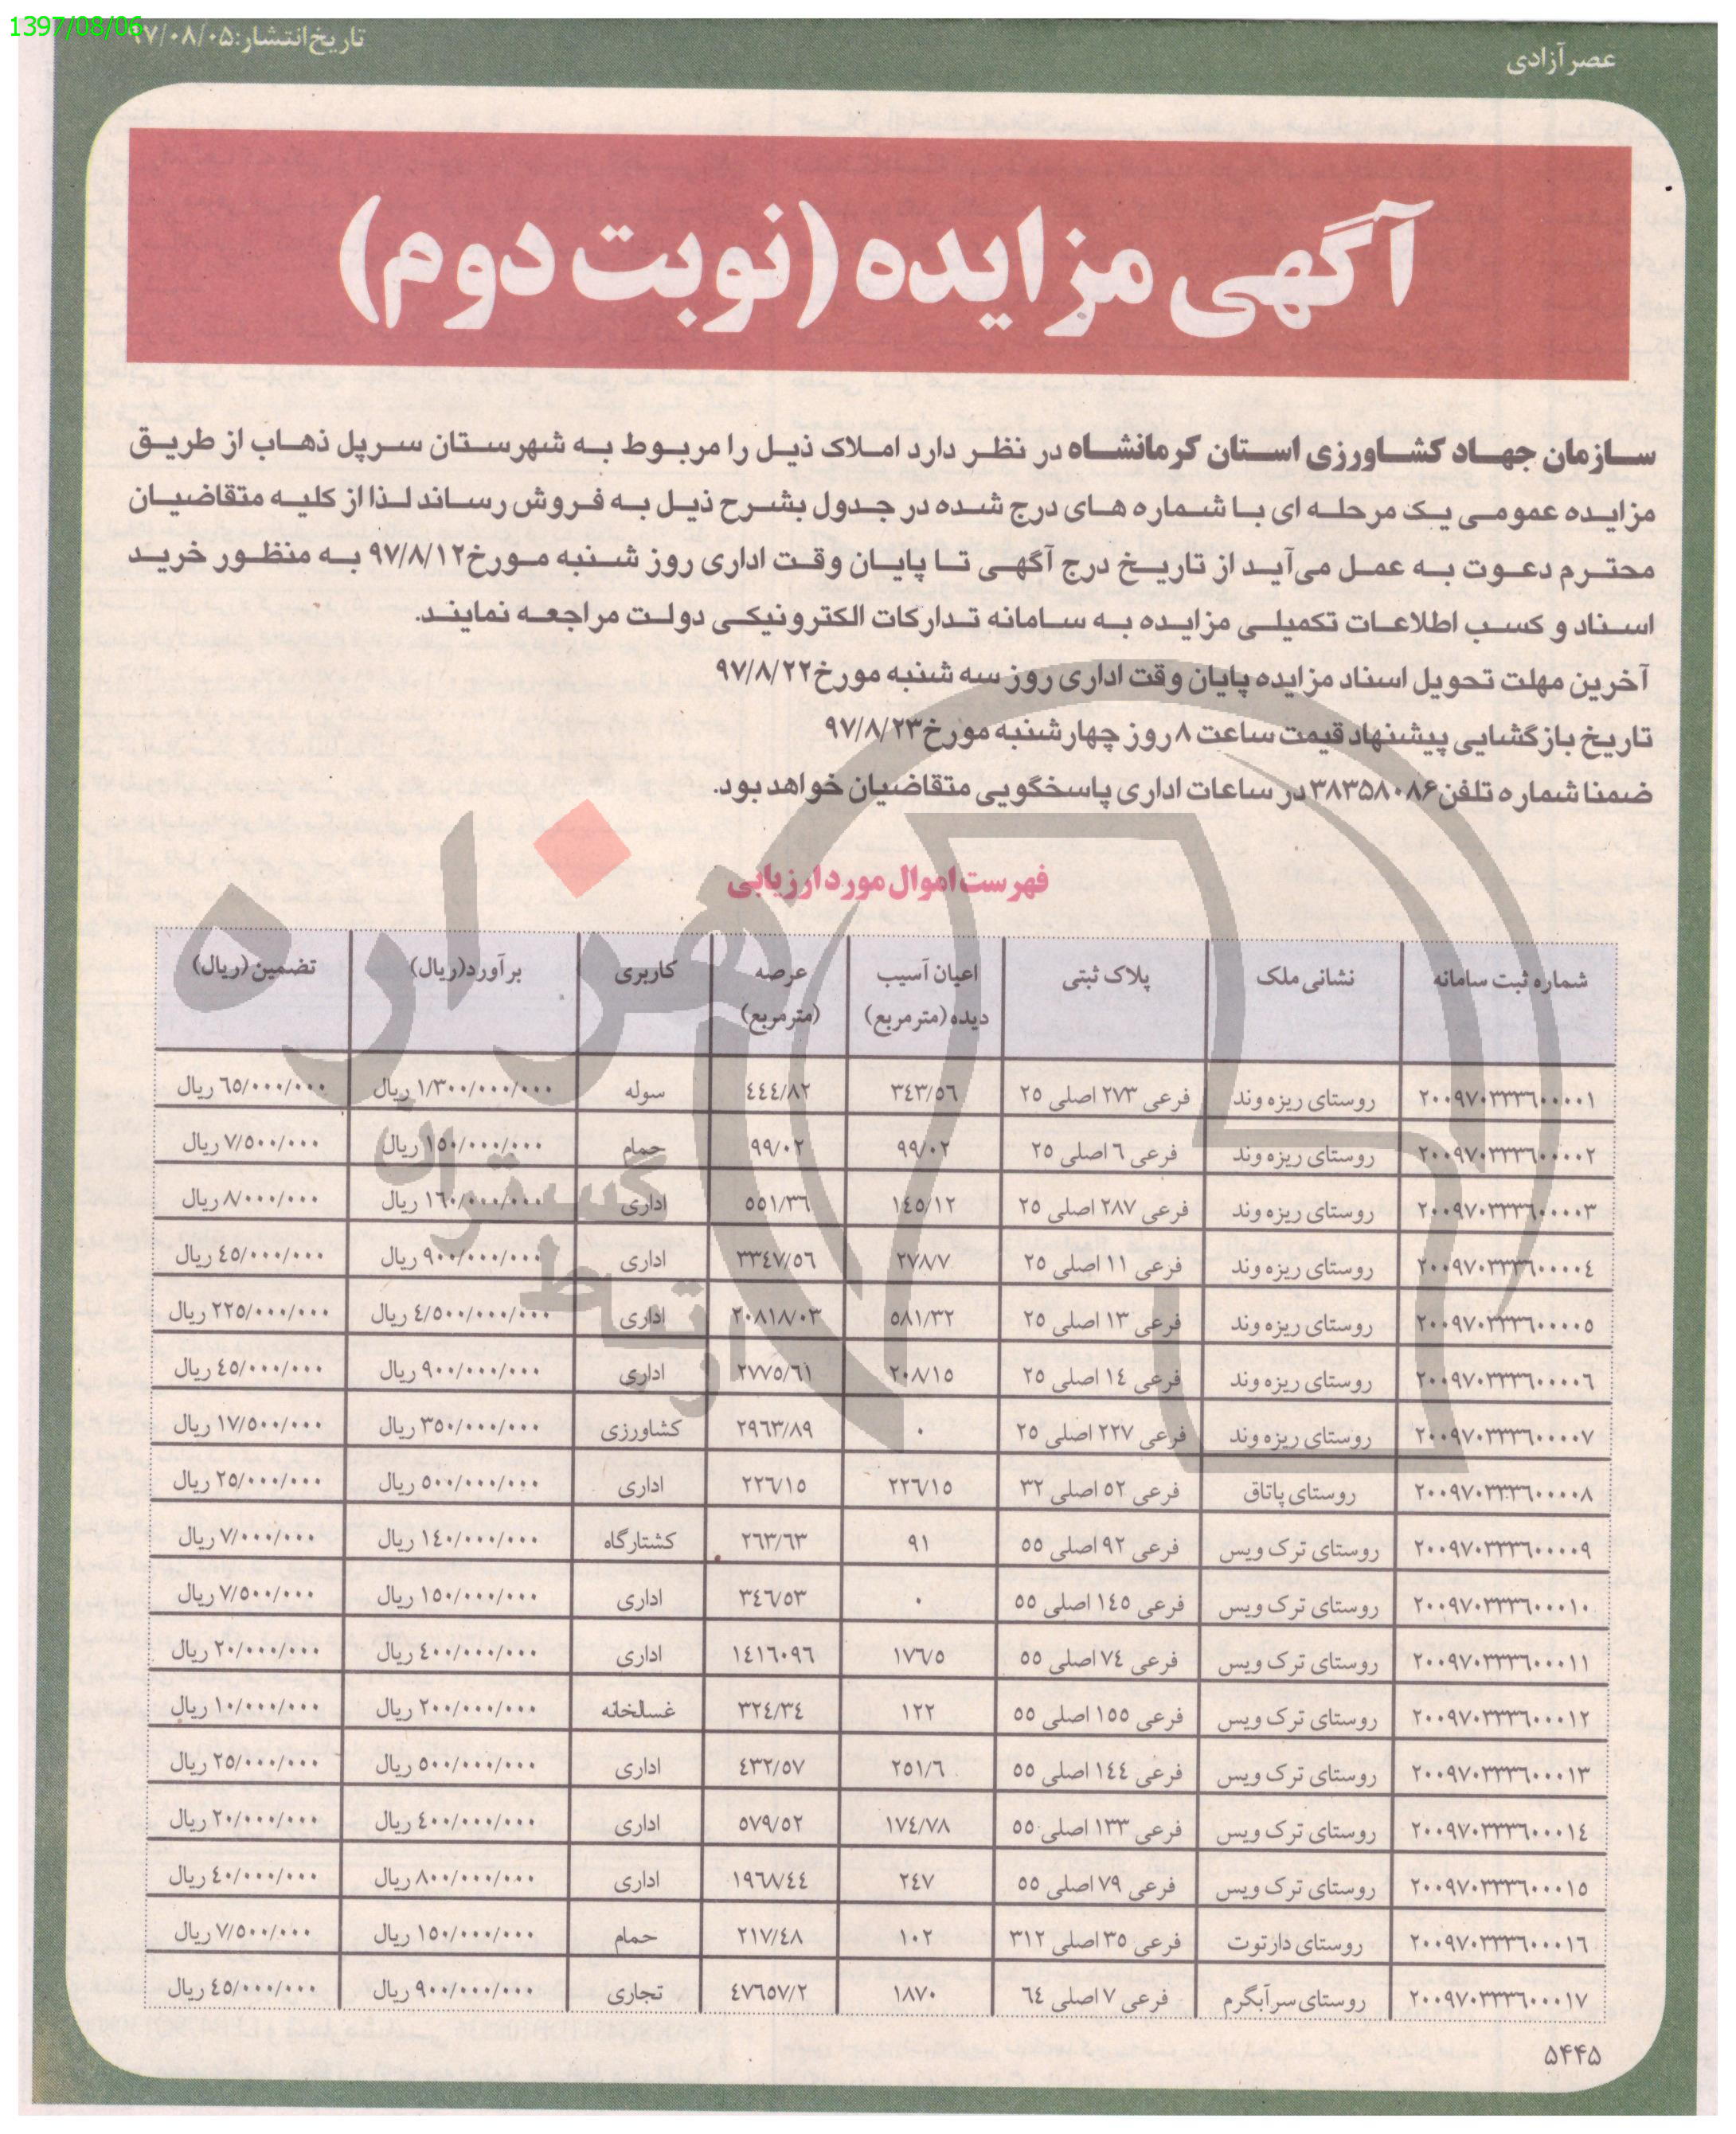 1397/08/06
عصر آزادی
تاریخ انتشار: ۹۷/۰۸/۰۵
آگهی مزایده (نوبت دوم)
سازمان جهاد کشاورزی استان کرمانشاه در نظر دارد املاک ذیل را مربوط به شهرستان سرپل ذهاب از طریق
مزایده عمومی یک مرحله ای با شماره های درج شده در جدول بشرح ذیل به فروش رساند لذا از کلیه متقاضیان
محترم دعوت به عمل می‌آید از تاریخ درج آگهی تا پایان وقت اداری روز شنبه مورخ ۹۷/۸/۱۲ به منظور خرید
اسناد و کسب اطلاعات تکمیلی مزایده به سامانه تدارکات الکترونیکی دولت مراجعه نمایند.
آخرین مهلت تحویل اسناد مزایده پایان وقت اداری روز سه شنبه مورخ ۹۷/۸/۲۲
تاریخ بازگشایی پیشنهاد قیمت ساعت ۸ روز چهارشنبه مورخ ۹۷/۸/۲۳
ضمنا شماره تلفن ۳۸۳۵۸۰۸۶ در ساعات اداری پاسخگویی متقاضیان خواهد بود.
فهرست اموال مورد ارزیابی
شماره ثبت سامانه نشانی ملک پلاک ثبتی اعیان آسیب دیده (مترمربع) عرصه (مترمربع) کاربری برآورد(ریال) تضمین (ریال)
۲۰۰۹۷۰۳۳۳۶۰۰۰۰۰۱ روستای ریزه وند فرعی ۲۷۳ اصلی ۲۵ ۳٤۳/۵٦ ٤٤٤/۸۲ سوله ۱/۳۰۰/۰۰۰/۰۰۰ ریال ٦۵/۰۰۰/۰۰۰ ریال
۲۰۰۹۷۰۳۳۳۶۰۰۰۰۰۲ روستای ریزه وند فرعی ٦ اصلی ۲۵ ۹۹/۰۲ ۹۹/۰۲ حمام ۱۵۰/۰۰۰/۰۰۰ ریال ۷/۵۰۰/۰۰۰ ریال
۲۰۰۹۷۰۳۳۳۶۰۰۰۰۰۳ روستای ریزه وند فرعی ۲۸۷ اصلی ۲۵ ۱٤۵/۱۲ ۵۵۱/۳٦ اداری ۱٦۰/۰۰۰/۰۰۰ ریال ۸/۰۰۰/۰۰۰ ریال
۲۰۰۹۷۰۳۳۳۶۰۰۰۰۰٤ روستای ریزه وند فرعی ۱۱ اصلی ۲۵ ۲۷۸/۷ ۳۳٤۷/۵٦ اداری ۹۰۰/۰۰۰/۰۰۰ ریال ٤۵/۰۰۰/۰۰۰ ریال
۲۰۰۹۷۰۳۳۳۶۰۰۰۰۰۵ روستای ریزه وند فرعی ۱۳ اصلی ۲۵ ۵۸۱/۳۲ ۲۰۸۱۸/۰۳ اداری ٤/۵۰۰/۰۰۰/۰۰۰ ریال ۲۲۵/۰۰۰/۰۰۰ ریال
۲۰۰۹۷۰۳۳۳۶۰۰۰۰۰٦ روستای ریزه وند فرعی ۱٤ اصلی ۲۵ ۲۰۸/۱۵ ۲۷۷۵/٦۱ اداری ۹۰۰/۰۰۰/۰۰۰ ریال ٤۵/۰۰۰/۰۰۰ ریال
۲۰۰۹۷۰۳۳۳۶۰۰۰۰۰۷ روستای ریزه وند فرعی ۲۲۷ اصلی ۲۵ ۰ ۲۹٦۳/۸۹ کشاورزی ۳۵۰/۰۰۰/۰۰۰ ریال ۱۷/۵۰۰/۰۰۰ ریال
۲۰۰۹۷۰۳۳۳۶۰۰۰۰۰۸ روستای پاتاق فرعی ۵۲ اصلی ۳۲ ۲۲٦/۱۵ ۲۲٦/۱۵ اداری ۵۰۰/۰۰۰/۰۰۰ ریال ۲۵/۰۰۰/۰۰۰ ریال
۲۰۰۹۷۰۳۳۳۶۰۰۰۰۰۹ روستای ترک ویس فرعی ۹۲ اصلی ۵۵ ۹۱ ۲٦۳/٦۳ کشتارگاه ۱٤۰/۰۰۰/۰۰۰ ریال ۷/۰۰۰/۰۰۰ ریال
۲۰۰۹۷۰۳۳۳۶۰۰۰۰۱۰ روستای ترک ویس فرعی ۱٤۵ اصلی ۵۵ ۰ ۳٤٦/۵۳ اداری ۱۵۰/۰۰۰/۰۰۰ ریال ۷/۵۰۰/۰۰۰ ریال
۲۰۰۹۷۰۳۳۳۶۰۰۰۰۱۱ روستای ترک ویس فرعی ۷٤ اصلی ۵۵ ۱۷٦/۵ ۱٤۱٦۰۹٦ اداری ٤۰۰/۰۰۰/۰۰۰ ریال ۲۰/۰۰۰/۰۰۰ ریال
۲۰۰۹۷۰۳۳۳۶۰۰۰۰۱۲ روستای ترک ویس فرعی ۱۵۵ اصلی ۵۵ ۱۲۲ ۳۲٤/۳٤ غسالخانه ۲۰۰/۰۰۰/۰۰۰ ریال ۱۰/۰۰۰/۰۰۰ ریال
۲۰۰۹۷۰۳۳۳۶۰۰۰۰۱۳ روستای ترک ویس فرعی ۱٤٤ اصلی ۵۵ ۲۵۱/٦ ٤۳۲/۵۷ اداری ۵۰۰/۰۰۰/۰۰۰ ریال ۲۵/۰۰۰/۰۰۰ ریال
۲۰۰۹۷۰۳۳۳۶۰۰۰۰۱٤ روستای ترک ویس فرعی ۱۳۳ اصلی ۵۵ ۱۷٤/۷۸ ۵۷۹/۵۲ اداری ٤۰۰/۰۰۰/۰۰۰ ریال ۲۰/۰۰۰/۰۰۰ ریال
۲۰۰۹۷۰۳۳۳۶۰۰۰۰۱۵ روستای ترک ویس فرعی ۷۹ اصلی ۵۵ ۲٤۷ ۱۹٦۸/٤٤ اداری ۸۰۰/۰۰۰/۰۰۰ ریال ٤۰/۰۰۰/۰۰۰ ریال
۲۰۰۹۷۰۳۳۳۶۰۰۰۰۱٦ روستای دارتوت فرعی ۳۵ اصلی ۳۱۲ ۱۰۲ ۲۱۷/٤۸ حمام ۱۵۰/۰۰۰/۰۰۰ ریال ۷/۵۰۰/۰۰۰ ریال
۲۰۰۹۷۰۳۳۳۶۰۰۰۰۱۷ روستای سرآبگرم فرعی ۷ اصلی ٦٤ ۱۸۷۰ ٤۷٦۵۷/۲ تجاری ۹۰۰/۰۰۰/۰۰۰ ریال ٤۵/۰۰۰/۰۰۰ ریال
۵۴۴۵
هزاره
گستران
ارتباط